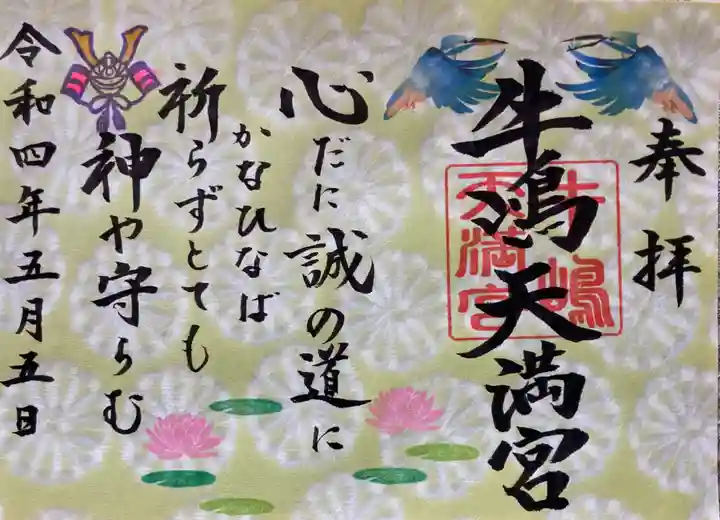 奉拝
牛嶋天満宮
牛嶋
天満宮
心だに誠の道に
かなひなば
祈らずとても
神や守らむ
令和四年五月五日